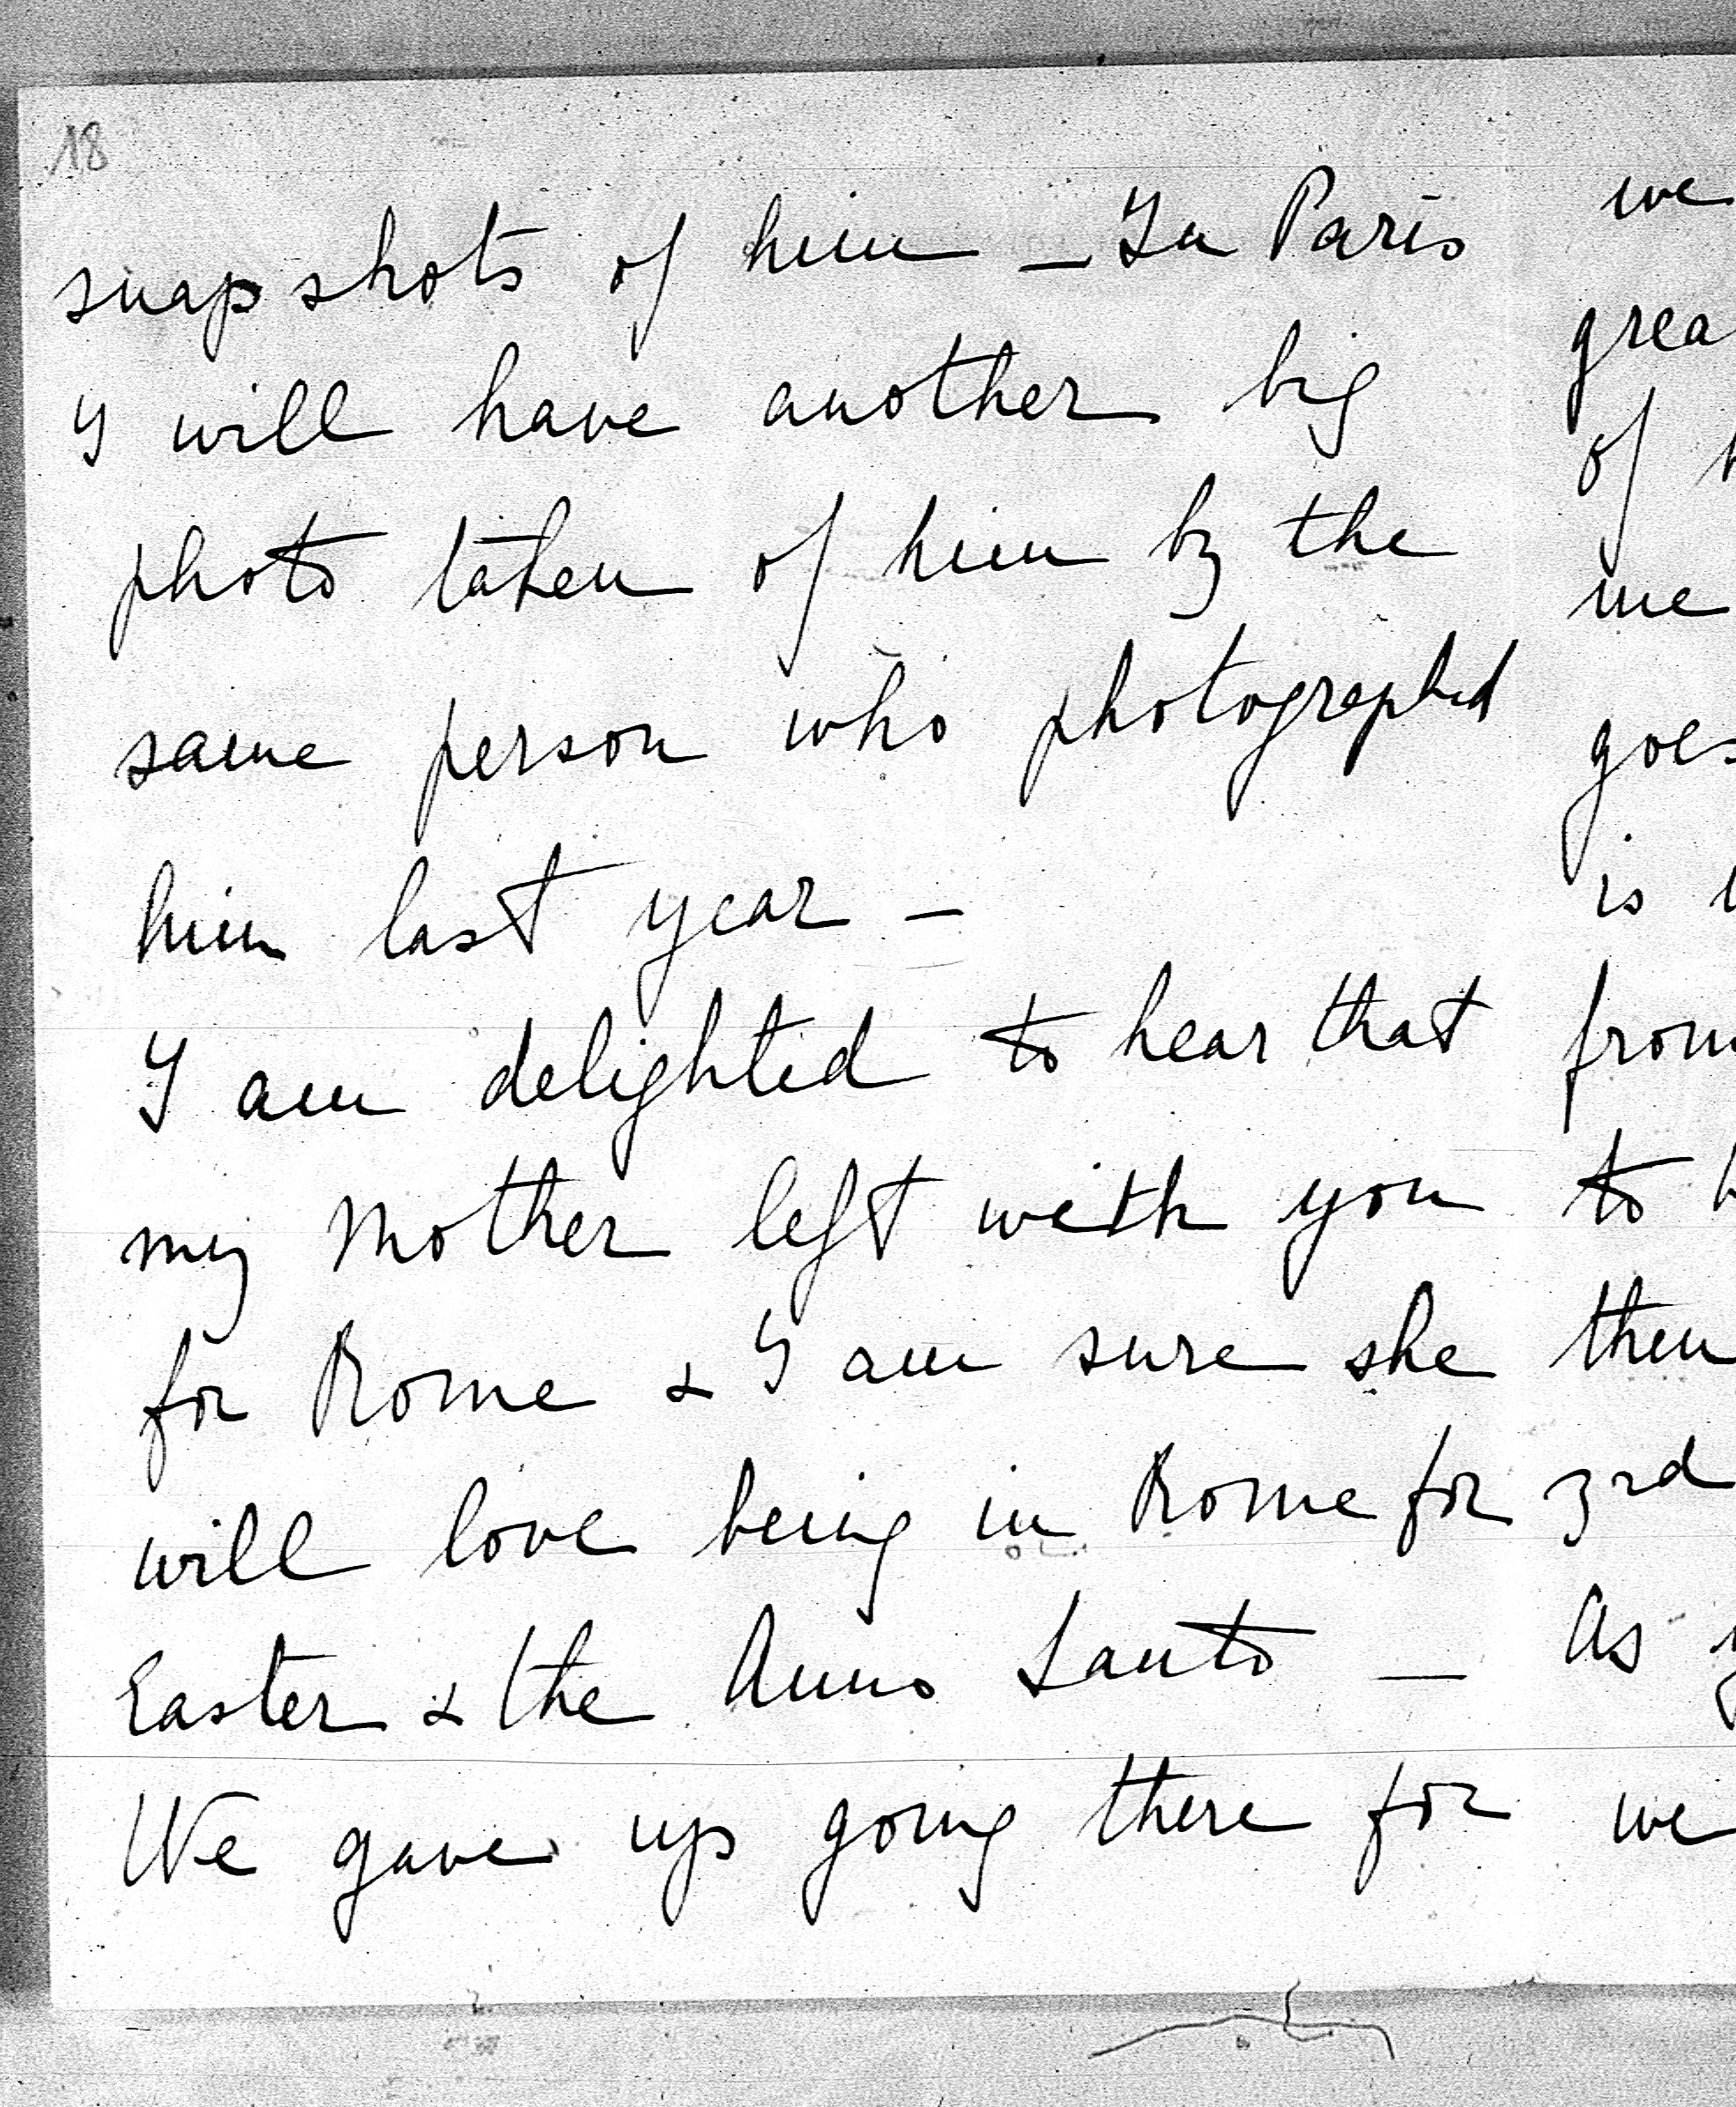 18
snapshots of him — In Paris
I will have another big
photo taken of him by the
same person who photographed
him last year —
I am delighted to hear that
my Mother left with you
for Rome & I am sure she
will love being in Rome for
Easter & the Anno Santo —
We gave up going there for
we
grea
of
me
goes
is
from
to
then
3rd
As
we